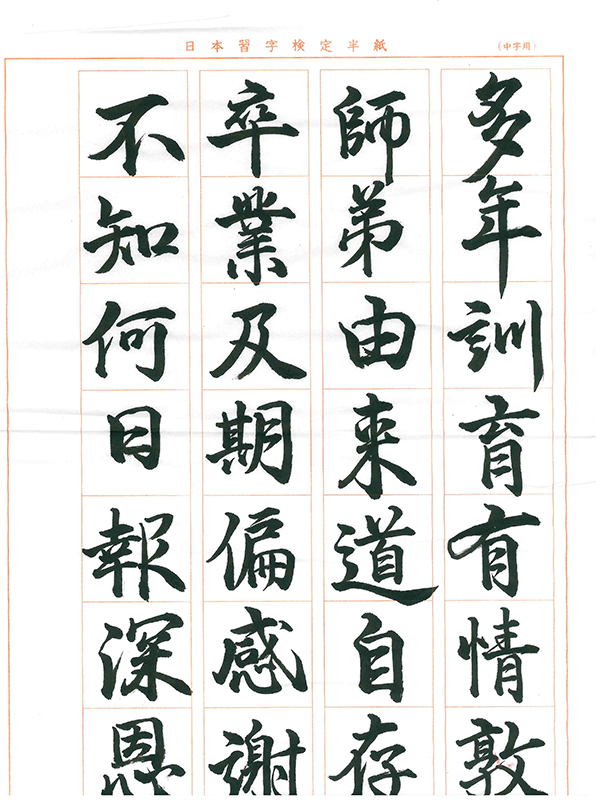 日本習字検定半紙
(中字用)
多年訓育有情敦
師弟由来道自存
卒業及期偏感謝
不知何日報深恩